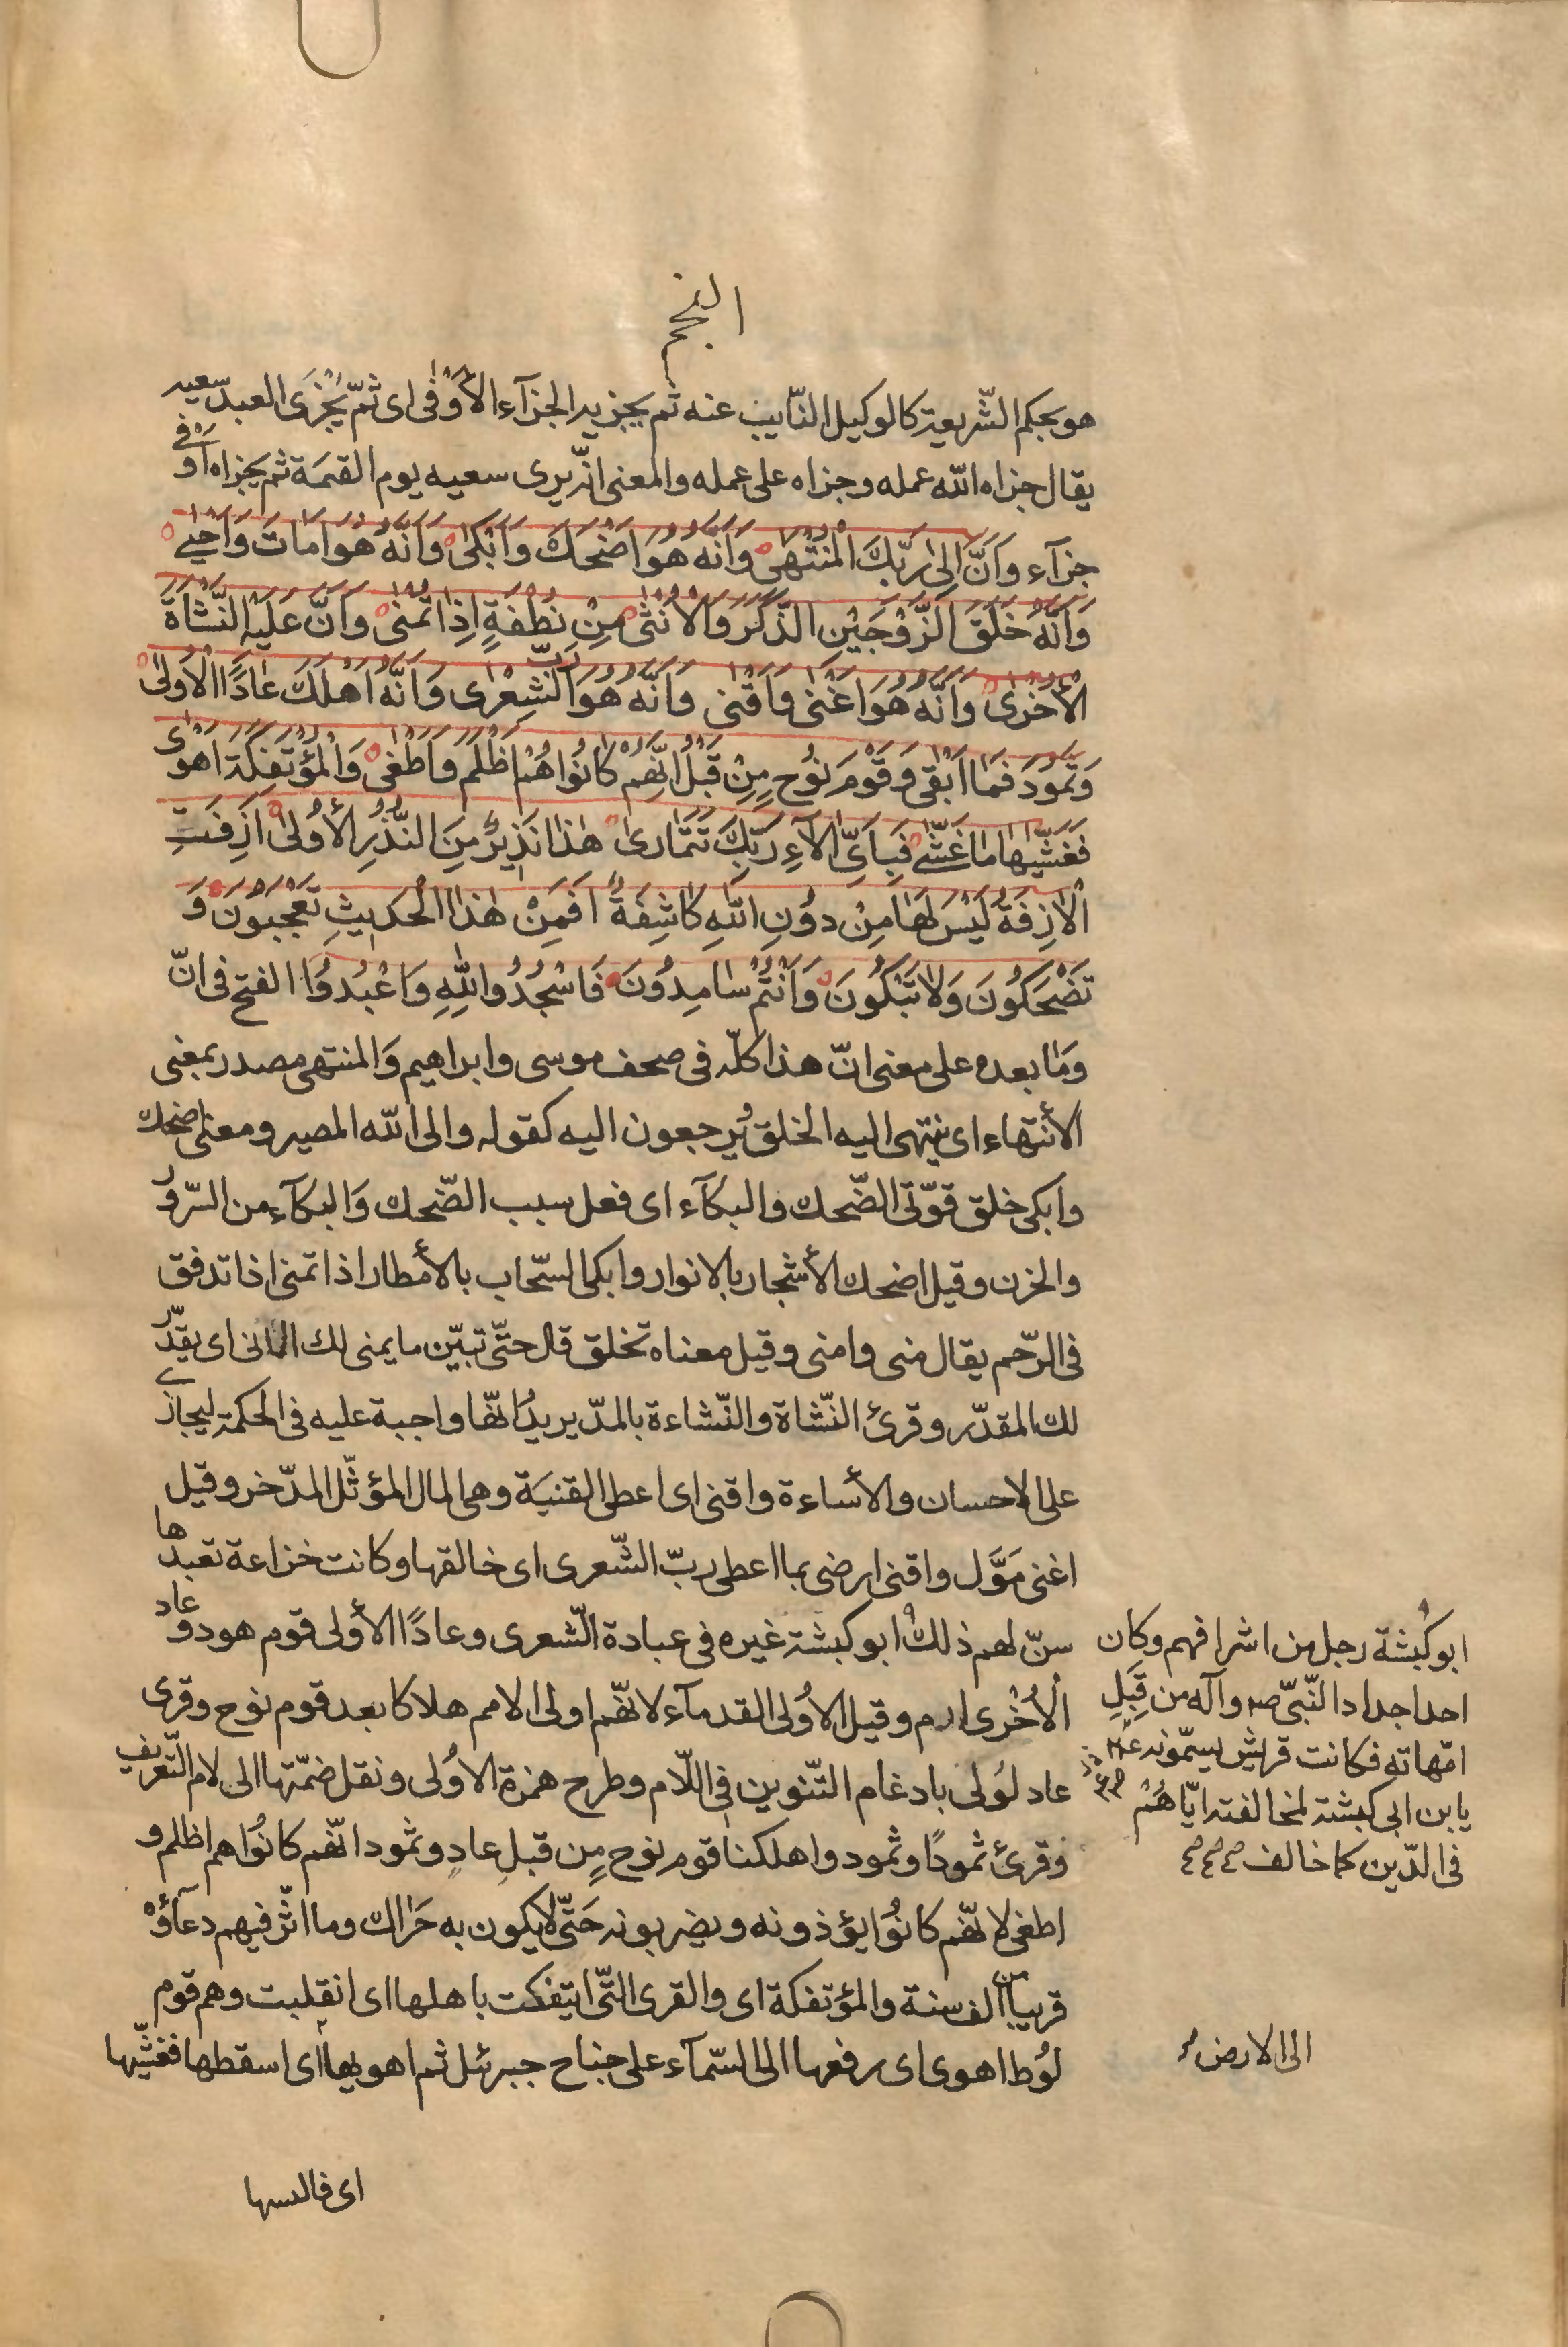 النجم
هو بحكم الشّريعة كالوكيل النّايب عنه ثم يجزيه الجزآء الأَوْفى اى ثمّ يُجْزَى العبد سعيه
يقال جزاه الله عمله وجزاه على عمله والمعنى انّه يرى سعيه يوم القيمة ثم يجزاه اَوْفى
جزآء وَاَنَّ اِلىٰ رَبِّكَ الْمُنْتَهىٰ وَاَنَّهُ هُوَ اَضْحَكَ وَاَبْكىٰ وَاَنَّهُ هُوَ اَمَاتَ وَاَحْيىٰ
وَاَنَّهُ خَلَقَ الزَّوْجَيْنِ الذَّكَرَ وَالْاُنْثىٰ مِنْ نُطْفَةٍ اِذٰا تُمْنىٰ وَاَنَّ عَلَيْهِ النَّشْاَةَ
الْأُخْرىٰ وَاَنَّهُ هُوَ اَغْنىٰ وَاَقْنىٰ وَاَنَّهُ هُوَ رَبُّ الشِّعْرىٰ وَاَنَّهُ اَهْلَكَ عٰادًا الْاُولىٰ
وَثَمُودَ فَمٰا اَبْقىٰ وَقَوْمَ نوُحٍ مِنْ قَبْلُ اِنَّهُمْ كٰانُوا هُمْ اَظْلَمَ وَاَطْغىٰ وَالْمُؤْتَفِكَةَ اَهْوىٰ
فَغَشّٰيهٰا مٰا غَشّٰى فَبِاَىِّ اٰلٰآءِ رَبِّكَ تَتَمٰارىٰ هٰذٰا نَذِيرٌ مِنَ النُّذُرِ الْأُولىٰ اَزِفَتِ
الْاٰزِفَةُ لَيْسَ لَهٰا مِنْ دوُنِ اللهِ كٰاشِفَةٌ اَفَمِنْ هٰذَا الْحَديثِ تَعْجَبُونَ وَ
تَضْحَكُونَ وَلٰا تَبْكُونَ وَاَنْتُمْ سٰامِدُونَ فَاسْجُدُوا لِلّٰهِ وَاعْبُدُوا الفتح فى انّ
وَمٰا بعده على معنى انّ هذا كلّه فى صحف موسى وابراهيم وَالمنتهى مصدر بمعنى
الأنتهاء اى ينتهى اليه الخلق يُرجعون اليه كقوله والى الله المصير ومعنى اضحك
وابكى خلق قوّتى الضّحك والبكآء اى فعل سبب الضّحك وَالبكآء من السّرور
والحزن وقيل اضحك الأشجار بالانوار وابكى السّحاب بالأمطار اذا تمنى اذا تدفق
فى الرّحم يقال منى وامنى وقيل معناه تخلق قال حتّى تبيّن ما يمنى لك المانى اى يقدّر
لك المقدّر وقرئ النّشاة والنّشاءة بالمدّ يريد انّها واجبة عليه فى الحكمة ليجازى
على الاحسان والأساءة واقنى اى اعطى القنيَة وهى المال المؤثّل المدّخر وقيل
اغنى مَوَّل واقنى ارضى بما اعطى ربّ الشّعرى اى خالقها وكانت خزاعة تعبدها
سنّ لهم ذلك ابو كبشة غيره فى عبادة الشّعرى وعادًا الأولى قوم هود وعاد
الْاُخْرى ارم وقيل الاُولى القدمآء لانّهم اولى الامم هلاكا بعد قوم نوح وقرى
عاد لُولى بادغام التّنوين فى اللّام وطرح همزة الاُولى ونقل ضمّتها الى لام التّعريف
وقرئ ثمودًا وثمود واهلكنا قوم نوح مِن قبل عادٍ وثمود انّهم كانُوا هم اظلم و
اطغى لانّهم كانُوا يؤذونه ويضربونه حَتّى لا يكون به حَرٰاك وما اثّر فيهم دعآؤُهْ
قريبا من الف سنة والمؤتفكة اى والقرى الّتى ايتفكت باهلها اى انقلبت وهم قوم
لُوط اهوى اى رفعها الى السّمآء على جناح جبرئل ثم اهويها اى اسقطها فغشّيها
ابو كَبْشة رجل من اشرافهم وكان
احد اجداد النّبىّ ص وآله من قِبَلِ
امّهاته فكانت قريش يسمّونه
يا بن ابى كبشة لمخالفته ايّاهُمْ
فى الدّين كما خالف
الى الارض
اى فالبسها